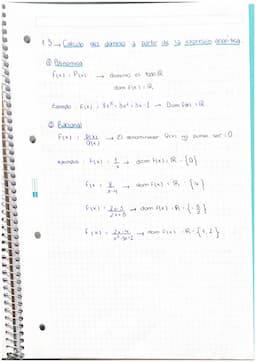 1.3 → Calculo del dominio a partir de su expresión analítica.
① Polinómica
f(x) = P(x) → dominio es todo ℝ
dom f(x) = ℝ
Ejemplo: f(x) = → Dom f(x) = ℝ
② Racional
f(x) = P(x)/Q(x) → El denominador Q(x) no puede ser = 0
ejemplos: f(x) = 1/x → dom f(x) = ℝ - {0}
→ dom f(x) = ℝ - {4}
f(x) = → dom f(x) = ℝ -
f(x) = → dom f(x) = ℝ - {1, 2}